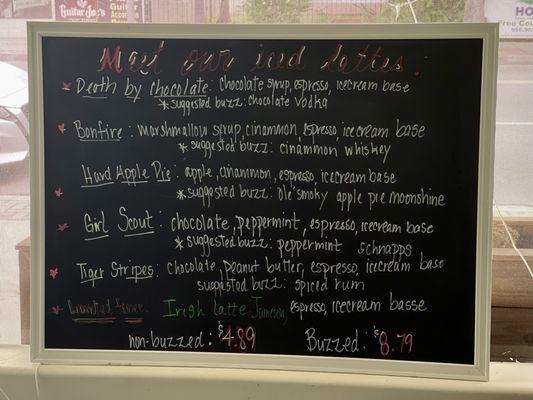 Guitar Joe's
Meet our iced lattes:
Death by chocolate: chocolate syrup, espresso, icecream base
*suggested buzz: chocolate vodka
Bonfire: marshmallow syrup, cinammon, espresso, icecream base
*suggested buzz: cinammon whiskey
Hard Apple Pie: apple, cinammon, espresso, icecream base
*suggested buzz: ole' smoky apple pie moonshine
Girl Scout: chocolate, peppermint, espresso, icecream base
*suggested buzz: peppermint schnapps
Tiger Stripes: chocolate, peanut butter, espresso, icecream base
suggested buzz: spiced rum
Irish latte Jameson, espresso, icecream basse
non-buzzed: $4.89 Buzzed: $8.79